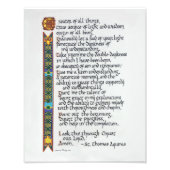 Creator of all things,
true source of light and wisdom,
origin of all being,
graciously let a ray of your light
penetrate the darkness
of my understanding.
Take from me the double darkness
in which I have been born,
an obscurity of sin and ignorance.
Give me a keen understanding,
a retentive memory, and
the ability to grasp things
correctly and fundamentally.
Grant me the talent of
being exact in my explanations
and the ability to express myself
with thoroughness and charm.
Point out the beginning,
direct the progress,
and help in the completion.
Christ
our Lord.
Amen.
-St. Thomas Aquinas